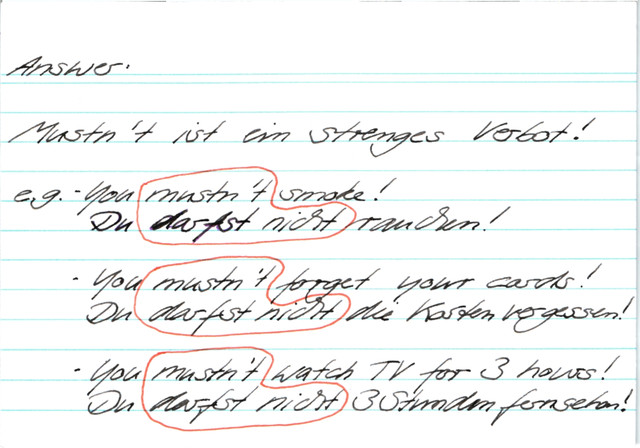 Answer:
Mustn't ist ein strenges Verbot!
e.g. - You mustn't smoke!
Du darfst nicht rauchen!
- You mustn't forget your cards!
Du darfst nicht die Karten vergessen!
- You mustn't watch TV for 3 hours!
Du darfst nicht 3 Stunden fernsehen!